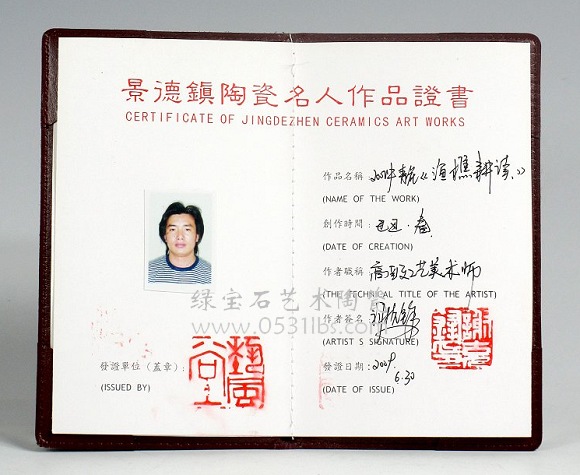 景德鎮陶瓷名人作品證書
CERTIFICATE OF JINGDEZHEN CERAMICS ART WORKS
作品名稱
《漁樵耕讀》
(NAME OF THE WORK)
創作時間：己丑·春
(DATE OF CREATION)
作者職稱 高级工艺美术师
(THE TECHNICAL TITLE OF THE ARTIST)
作者簽名
(ARTIST S SIGNATURE)
發證日期：2009.
6.30
(DATE OF ISSUE)
發證單位（蓋章）：
(ISSUED BY)
绿宝石艺术陶瓷
www.0531lbs.com